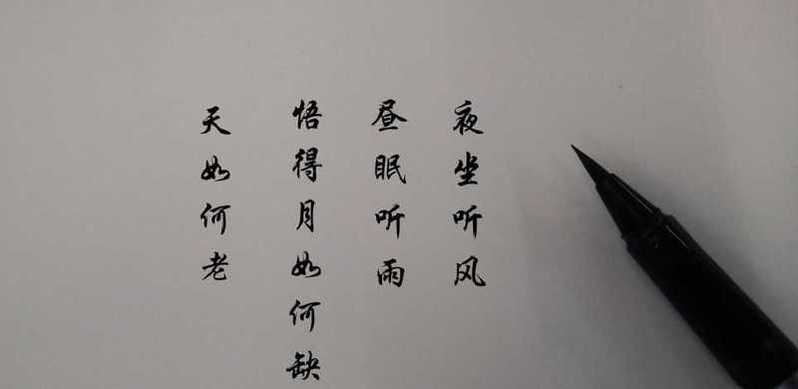 夜坐听风
昼眠听雨
悟得月如何缺
天如何老